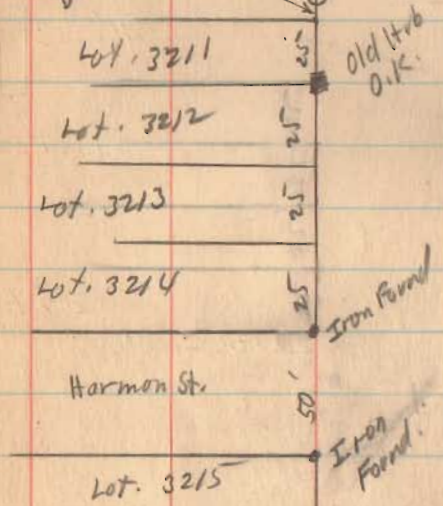 Lot. 3211
25
Old Hub
O.K.
Lot. 3212
25
Lot. 3213
25
Lot. 3214
25
Iron Found
Harmon St.
50'
Iron
Found.
Lot. 3215